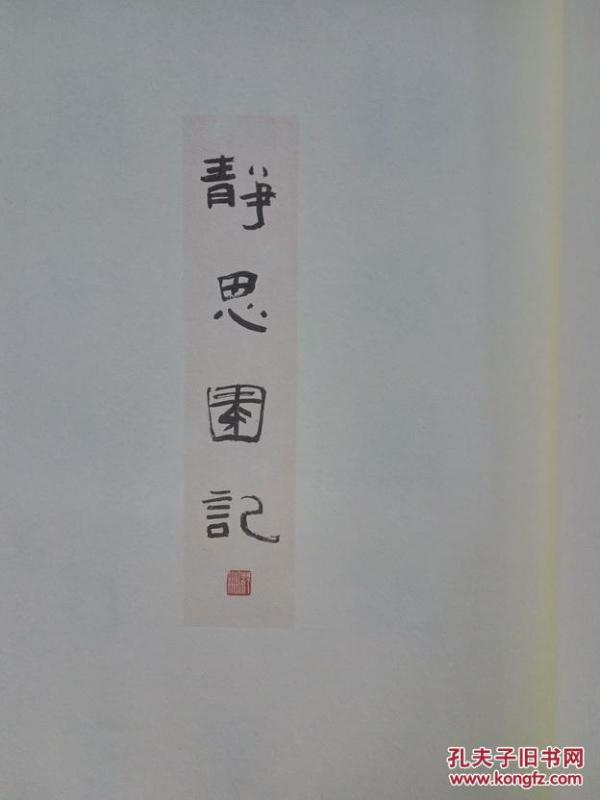 靜思園記
孔夫子旧书网
www.kongfz.com